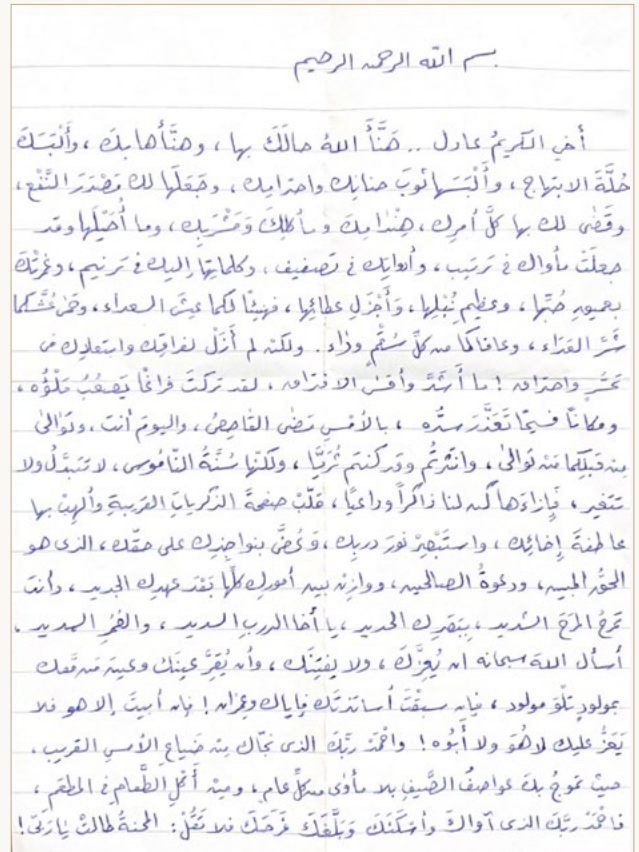 بسم الله الرحمن الرحيم
أخي الكريمُ عادل .. هَنَّأَ اللهُ حالَكَ بها ، وهنَّأها بكَ ، وأَلْبَسَكَ
حُلَّةَ الابتهاج ، وأَلْبَسَها ثوبَ حنانِك واحترامِك ، وجَعَلَها لك مَصْدَرَ النَّفْعِ ،
وقَضَى لك بها كلَّ أمرِك ، هِنْدامِكَ ومأكلِكَ وَمَشْرَبِك ، وما أُحَيْلَها وقد
جعلَتْ مأواك في ترتيب ، وأثوابَك في تصفيف ، وكلماتِها إليك في تَرنيم ، وغَمَرَتْكَ
بعميمِ حُبِّها ، وعظيمِ نُبْلِها ، وَأَجْزَلِ عطائِها ، فهنيئًا لكما عيشَ السعداء ،
شَرَّ العِدَاء ، وعافاكما من كلِّ سُقْمٍ وداء . ولكنْ لم أَزَلْ لفراقِك وابتعادِك في
تحسُّرٍ واحتراق ! ما أَشَدَّ وأقسى الافتراق ، لقد تركتَ فراغًا يَصْعُبُ مَلْؤُه ،
ومكانًا فسيحًا تَعَذَّرَ سدُّه ، بالأمسِ مَضى القاصِي ، واليومَ أنتَ ، وتَوالى
مِن قبلِكما مَن تَوالى ، وانتثرتُم وقد كنتم ثُرَيَّا ، ولكنّها سُنَّةُ النَّاموسِ ، لا تتبَدَّلُ ولا
تتغير ، فإزاءَها كن لنا ذاكراً وداعيًا ، قلِّبْ صفحةَ الذكرياتِ القريبةِ وألهِبْ بها
عاطفةَ إخائِك ، واستَبْصِرْ نورَ دربِك ، وَعُضَّ بنواجذِك على حقّك ، الذي هو
الحقُّ المبين ، ودعوةُ الصالحين ، ووازِنْ بين أمورِك كلِّها بَعْدَ عهدِك الجديد ، وأنتَ
تَمرَحُ المَرَحَ الشديد ، بِبَصَرِك الحديد ، يا أخا الدربِ السديد ، والعُمُرِ المديد .
أسأل اللهَ سبحانه أن يُعِزَّكَ ، ولا يفتِنَك ، وأن يُقِرَّ عينَكَ وعينَ مَن مَعك
بمولودٍ تِلْوَ مولود ، فإن سبقْتَ أساتذتَك فإياك وعِمران ! فإن أبيتَ إلا هو فلا
يَعَزُّ عليك لا هُوَ ولا أَبُوه ! واحْمَدْ ربَّكَ الذي نجّاك مِن ضَياعِ الأمسِ القريب ،
حينَ تموجُ بكَ عواصفُ الصَّيفِ بلا مأوى من كلِّ عام ، ومِن أَكْلِ الطَّعامِ في المطعم ،
فاحْمَدْ ربَّكَ الذي آواكَ وأسْكَنَكَ وبَلَّغَكَ فَرَحَكَ فلا تَقُلْ : المحنةُ طالتْ يا زمنى !